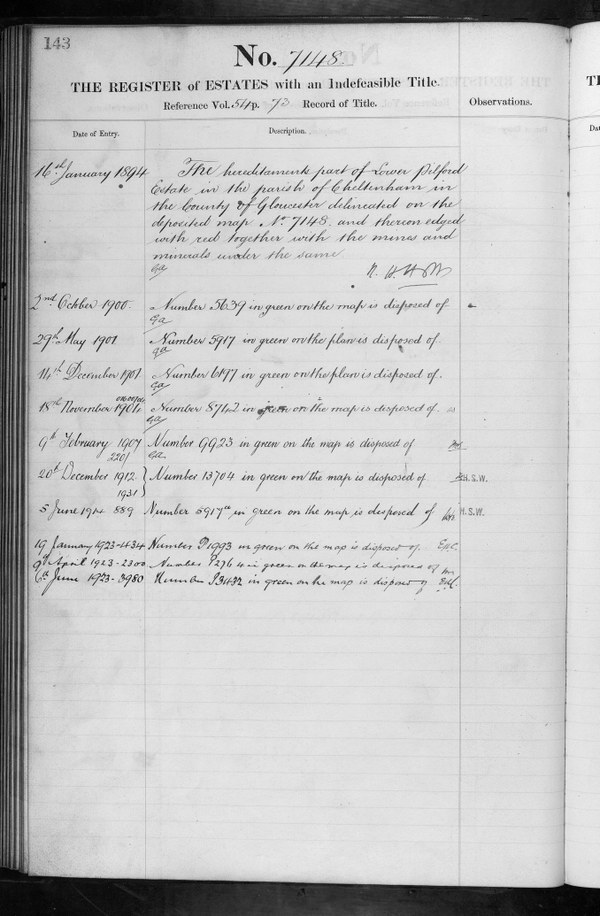 143
No. 7148.
THE REGISTER of ESTATES with an Indefeasible Title.
Reference Vol. 54 p. 73 Record of Title.
Observations.
Date of Entry.
Description.
16th January 1894
The hereditaments part of Lower Pilford
Estate in the parish of Cheltenham in
the County of Gloucester delineated on the
deposited map No. 7148. and thereon edged
with red together with the mines and
minerals under the same
2nd October 1900. Number 5639 in green on the map is disposed of.
29th May 1901 Number 5917 in green on the plan is disposed of.
14th December 1901 Number 6197 in green on the plan is disposed of.
18th November 1904 Number 8742 in green on the map is disposed of.
9th February 1907 Number 9923 in green on the map is disposed of
2201
20th December 1912 Number 13704 in green on the map is disposed of H.S.W.
1931
5 June 1914 889 Number 5917a in green on the map is disposed of H.S.W.
19 January 1923-434 Number P1993 in green on the map is disposed of.
9th April 1923-2300 Number P2764 in green on the map is disposed of
6th June 1923-3980 Number P3432 in green on the map is disposed of